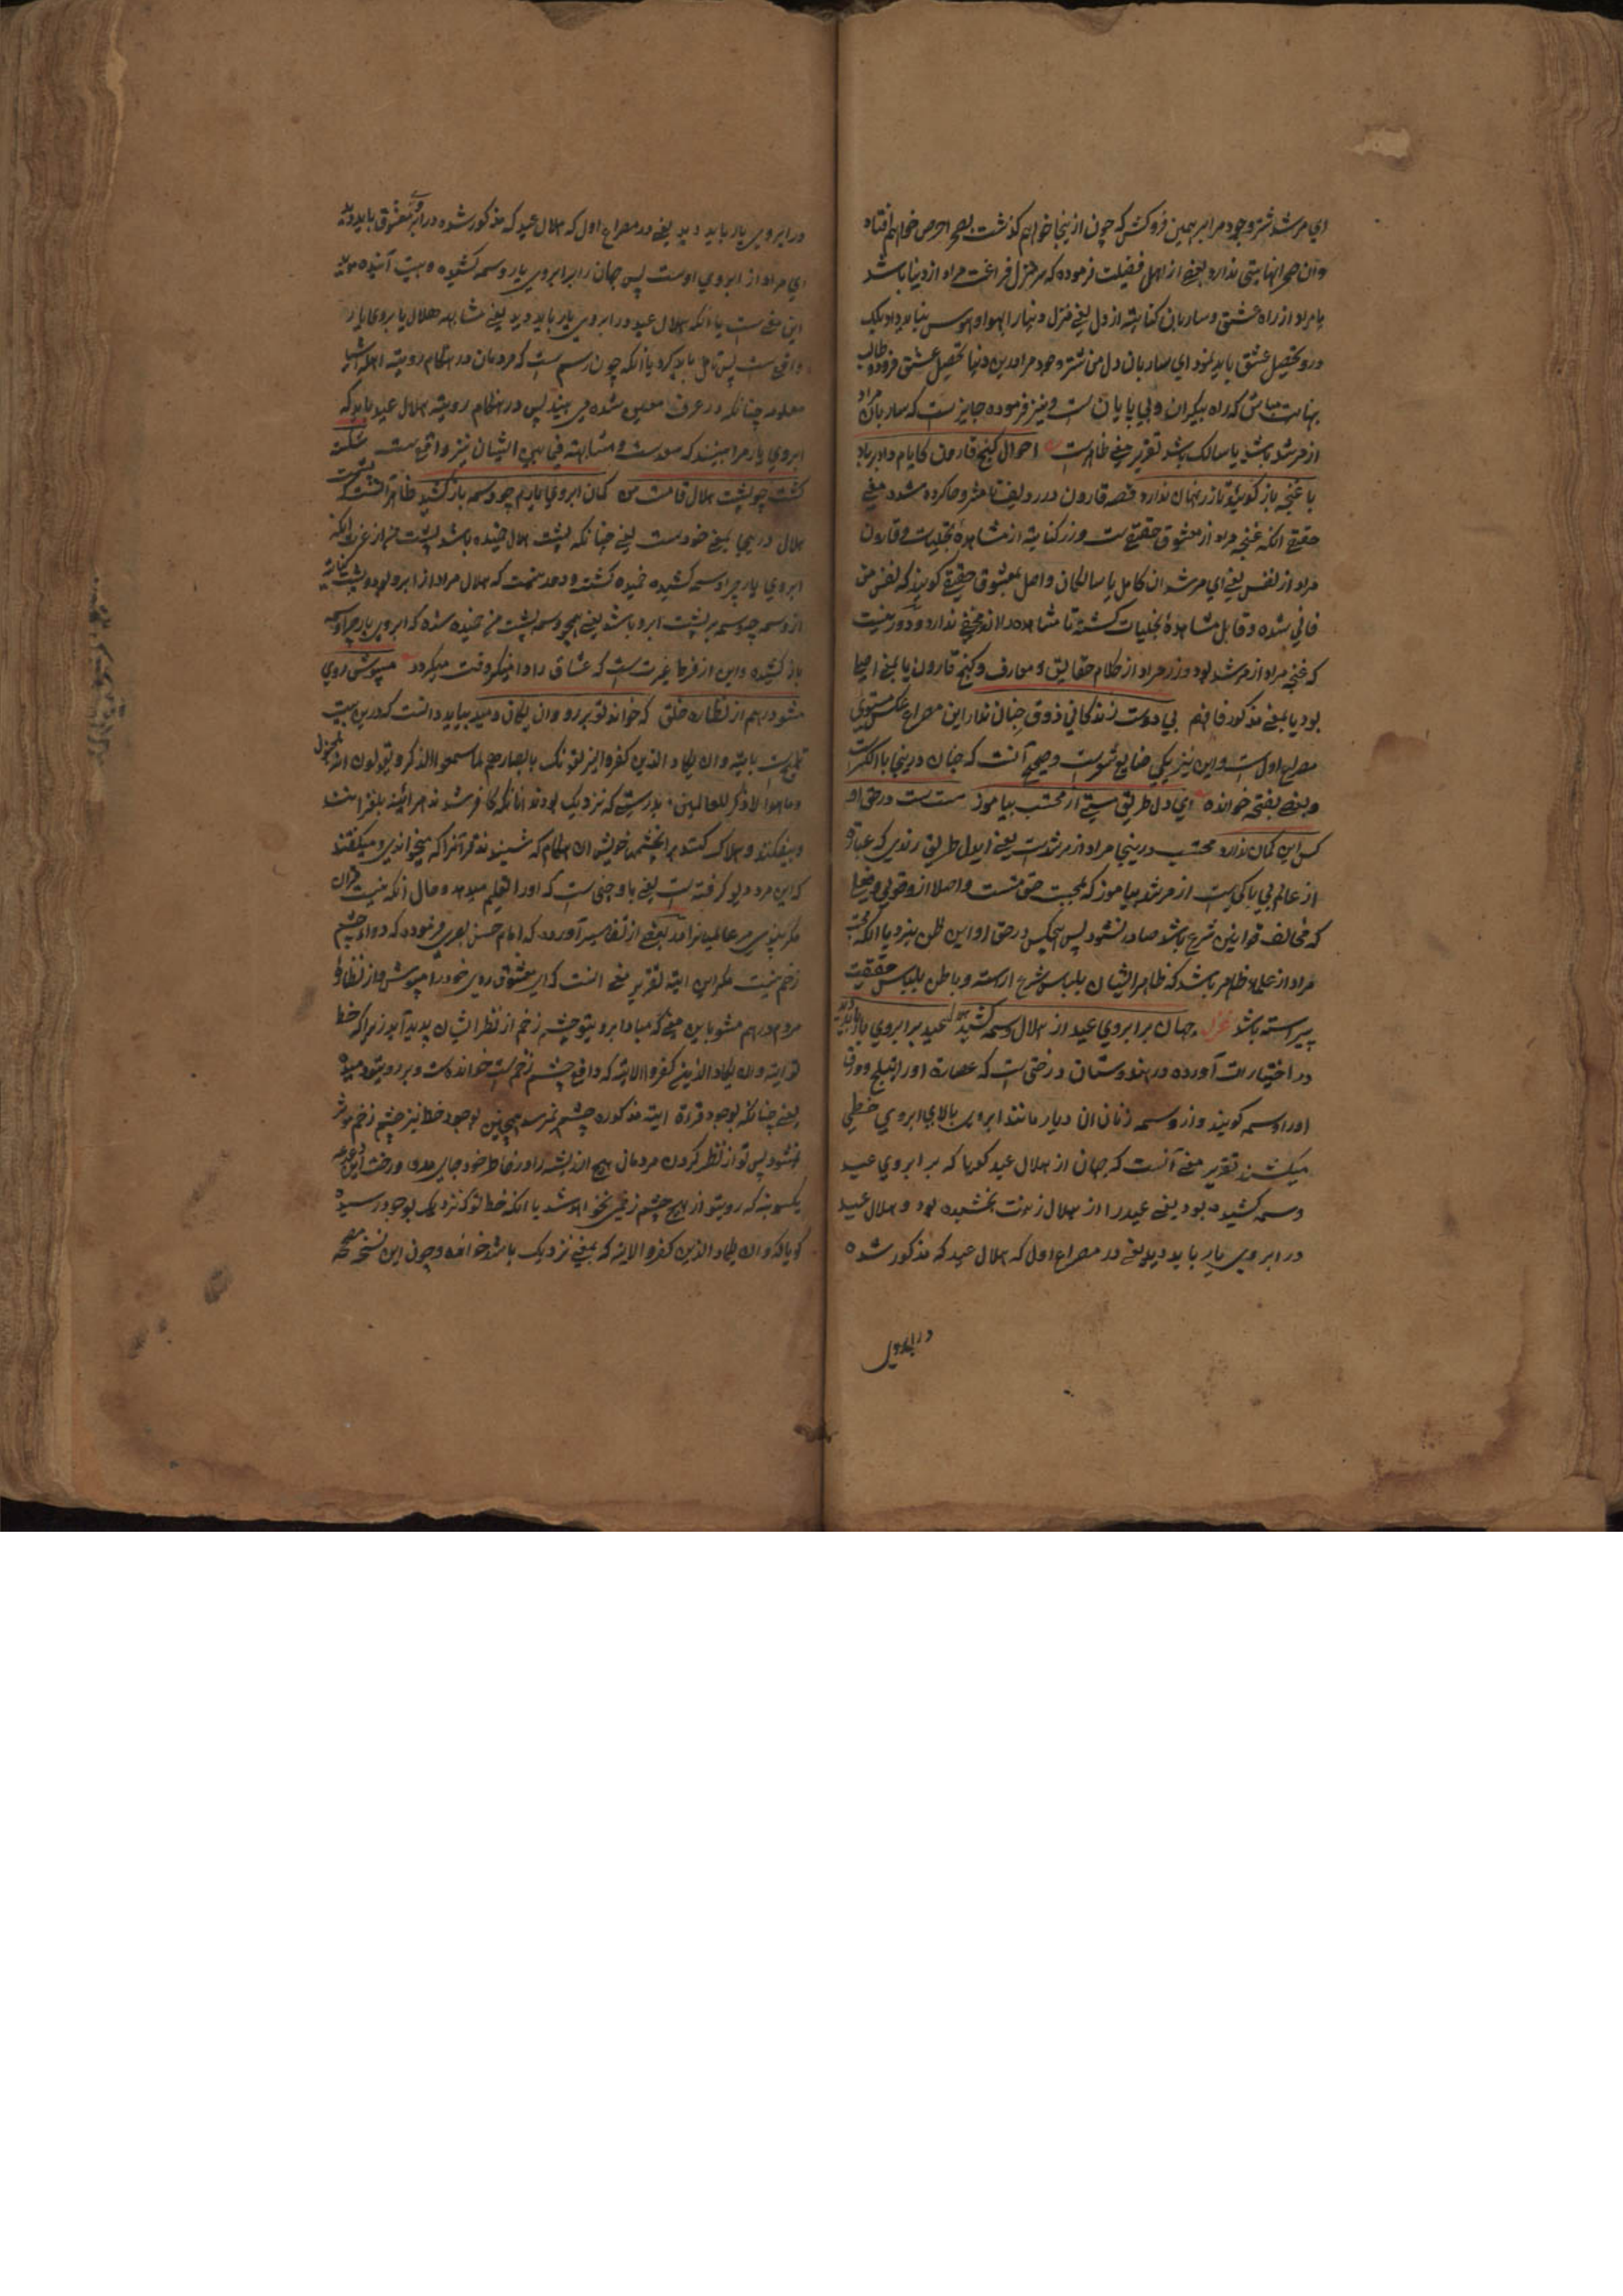 ای مرشد شتر وجود مرا بر همین فروکش که چون ازینجا خواهم گذشت بصحرا حرص خواهم افتاد
وان صحرا نهایتی ندارد بعضے از اهل فضیلت فرموده که سر منزل فراغت مراد از دنیا باشد
یا مراد از راه عشق و ساربان کنایه از دل یعنے منزل دنیا را بهوا و هوس نباید داد بلک
درو تحصیل عشق باید نمود ای ساربان دل من شتر وجود مرا درین دنیا تحصیل عشق فرود و طالب
نهایت مباش که راه بیکران و بی پایان ست و نیز فرموده جایز است که ساربان مراد
از مرشد باشد یا سالک باشد تقریر معنے ظاهرست احوال گنج قارون کایام داد بر باد
با غنچه باز گوئید تا زر نهان ندارد قصه قارون در ردیف تا مشروحا کرده شد معنے
حقیقے آنکه غنچه مراد از معشوق حقیقے ست و زر کنایه از مشاهدهٔ تجلیات و قارون
مراد از نفس یعنے ای مرشدان کامل یا سالکان واصل بمعشوق حقیقے گویند که نفس من
فانی شده و قابل مشاهدهٔ تجلیات گشته تا مشاهده را از مخفی ندارد و دور نیست
که غنچه مراد از مرشد بود و زر مراد از کلام حقایق و معارف و گنج قارون یا بمعنے احیا
بود یا بمعنے مذکور فافهم بی دوست زندگانی ذوق چنان ندارد این مصراع عکس مستوی
مصراع اول است و این نیز یکی صنایع شعرست و صحیح آنست که چنان درینجا بالکسرست
و بعضے بفتحه خوانده ای دل طریق مستے از محتسب بیاموز مست ست در حق او
کس این گمان ندارد محتسب درینجا مراد از مرشدست یعنے ایدل طریق رندی که عبارة
از عالم بی باکی ست از مرشد بیاموز که بمحبت حق مست و اصلا از و قولی و فعلے
که مخالف قوانین شرع باشد صادر نشود پس هیچکس در حق او این ظن نبرد یا آنکه محتسب
مراد از علماء ظاهر باشد که ظاهر ایشان بلباس شرع اراسته و باطن بلباس حقیقت
پیراسته باشد غزل جهان بر ابروی عید از هلال وسمه کشید هلال عید بر ابروی یار باید دید
در اختیارات آورده در هندوستان درختی ست که عصاره اورا نیلج و ورق
اورا وسمه گویند و از وسمه زنان ان دیار مانند ابروی بالای ابروی خطی
میکشند تقریر معنے آنست که جهان از هلال عید گویا که بر ابروی عید
وسمه کشیده بود یعنے عید را از هلال زینت بخشیده بود و هلال عید
در ابروی یار باید دید یعنے در مصراع اول که هلال عید که مذکور شده
در ابروی
در ابروی یار باید دید یعنے در مصراع اول که هلال عید که مذکور شده در ابروی معشوق باید دید
ای مراد از ابروی اوست پس جهان را بر ابروی یار وسمه کشیده و بیت آینده موید
این معنے ست یا آنکه هلال عید در ابروی یار باید دید یعنے مشابه هلال با بروی یار
واقع ست پس تامل باید کرد یا آنکه چون رسم ست که مردمان در هنگام رویة اهله اشیا
معلومه چنانکه در عرف معین شده می بینند پس در هنگام رویة هلال عید باید که
ابروی یار مرا ببینند که سعدست و مشابهته فی مابین ایشان نیز واقع ست شکسته
گشت چو پشت هلال قامت من کمان ابروی یارم چو وسمه باز کشید ظاهر آنست که پشت
هلال درینجا بمعنے خودست یعنے چنانکه پشت هلال خمیده باشد پشت من از غم آنکه
ابروی یار چرا وسمه کشیده خمیده گشته و دور نیست که هلال مراد از ابرو بود و پشت کنایه
از وسمه چه وسمه بر پشت ابرو باشد یعنے همچو وسمه پشت من خمیده شده که ابروی یار چرا وسمه
باز کشیده و این از فرط غیرت ست که عشاق را دامنگیر وقت میگردد مپوش روی
مشو درهم از نظاره خلق که خواند خط تو بر رو وان یکاد و دمید بباید دانست که درین بیت
تلمیح ست بایة وان یکاد الذین کفروا لیزلقونک بابصارهم لما سمعوا الذکر و یقولون انه لمجنون
و ما هو الا ذکر للعالمین بدرستے که نزدیک بودند انانکه کافر شدند هر آئینه بلغزانند
و بیفکنند و هلاک کنند ترا بچشمهای خویش ان هنگام که شنیدند قرآنرا که میخواندی و میگفتند
که این مرد دیو گرفته است یعنے با و جنی ست که اورا تعلیم میدهد و حال آنکه نیست قران
مگر پندی مر عالمیانرا و بعضے از تفاسیر آورده که امام حسن بصری فرموده که دواء چشم
زخم نیست مگر این ایة تقریر معنے آنست که ای معشوق روی خود را مپوش و از نظاره
مردم درهم مشو باین معنے که مبادا بر روی تو چشم زخم از نظر ایشان پدید آید زیرا که خط
تو ایة وان یکاد الذین کفروا الایة که دافع چشم زخم ست خوانده است و بر روی تو دمیده
یعنے چنانکه بوجود قراءة ایة مذکوره چشم نرسد همچنین بوجود خط نیز چشم زخم موثر
نشود پس تو از نظر کردن مردمان هیچ اندیشه را در خاطر خود جای مده و رخت این دغدغه
یکسو بنه که روی تو از هیچ چشم زخمی نخواهد شد یا آنکه خط تو که نزدیک بوجود رسیده
گویا که وان یکاد الذین کفروا الایة که بمعنے نزدیک باشد خوانده و چون این نسخه صحیحه